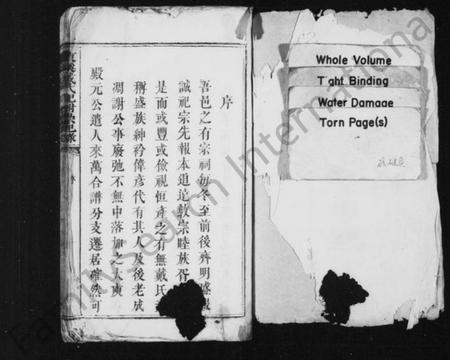 序
吾邑之有宗祠每冬至前後齊明盛
誠祀宗先報本追遠敦宗睦族胥
是而或豐或儉視恒產之有無戴氏
稱盛族紳衿偉彥代有其人及後老成
凋謝公事廢弛不無中落加之大庾
殿元公遣人來萬合譜分支遷居確然可
Whole Volume
Tight Binding
Water Damage
Torn Page(s)
FamilySearch International